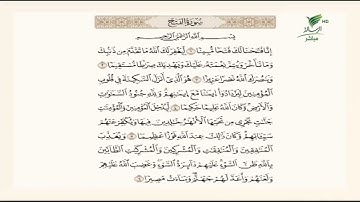 سُورَةُ الفَتْحِ
HD
مباشر
بِسْمِ اللَّهِ الرَّحْمَٰنِ الرَّحِيمِ
إِنَّا فَتَحْنَا لَكَ فَتْحًا مُّبِينًا ١ لِّيَغْفِرَ لَكَ اللَّهُ مَا تَقَدَّمَ مِن ذَنبِكَ
وَمَا تَأَخَّرَ وَيُتِمَّ نِعْمَتَهُ عَلَيْكَ وَيَهْدِيَكَ صِرَاطًا مُّسْتَقِيمًا ٢
وَيَنصُرَكَ اللَّهُ نَصْرًا عَزِيزًا ٣ هُوَ الَّذِي أَنزَلَ السَّكِينَةَ فِي قُلُوبِ
الْمُؤْمِنِينَ لِيَزْدَادُوا إِيمَانًا مَّعَ إِيمَانِهِمْ وَلِلَّهِ جُنُودُ السَّمَاوَاتِ
وَالْأَرْضِ وَكَانَ اللَّهُ عَلِيمًا حَكِيمًا ٤ لِّيُدْخِلَ الْمُؤْمِنِينَ وَالْمُؤْمِنَاتِ
جَنَّاتٍ تَجْرِي مِن تَحْتِهَا الْأَنْهَارُ خَالِدِينَ فِيهَا وَيُكَفِّرَ عَنْهُمْ
سَيِّئَاتِهِمْ وَكَانَ ذَٰلِكَ عِندَ اللَّهِ فَوْزًا عَظِيمًا ٥ وَيُعَذِّبَ
الْمُنَافِقِينَ وَالْمُنَافِقَاتِ وَالْمُشْرِكِينَ وَالْمُشْرِكَاتِ الظَّانِّينَ
بِاللَّهِ ظَنَّ السَّوْءِ عَلَيْهِمْ دَائِرَةُ السَّوْءِ وَغَضِبَ اللَّهُ عَلَيْهِمْ
وَلَعَنَهُمْ وَأَعَدَّ لَهُمْ جَهَنَّمَ وَسَاءَتْ مَصِيرًا ٦